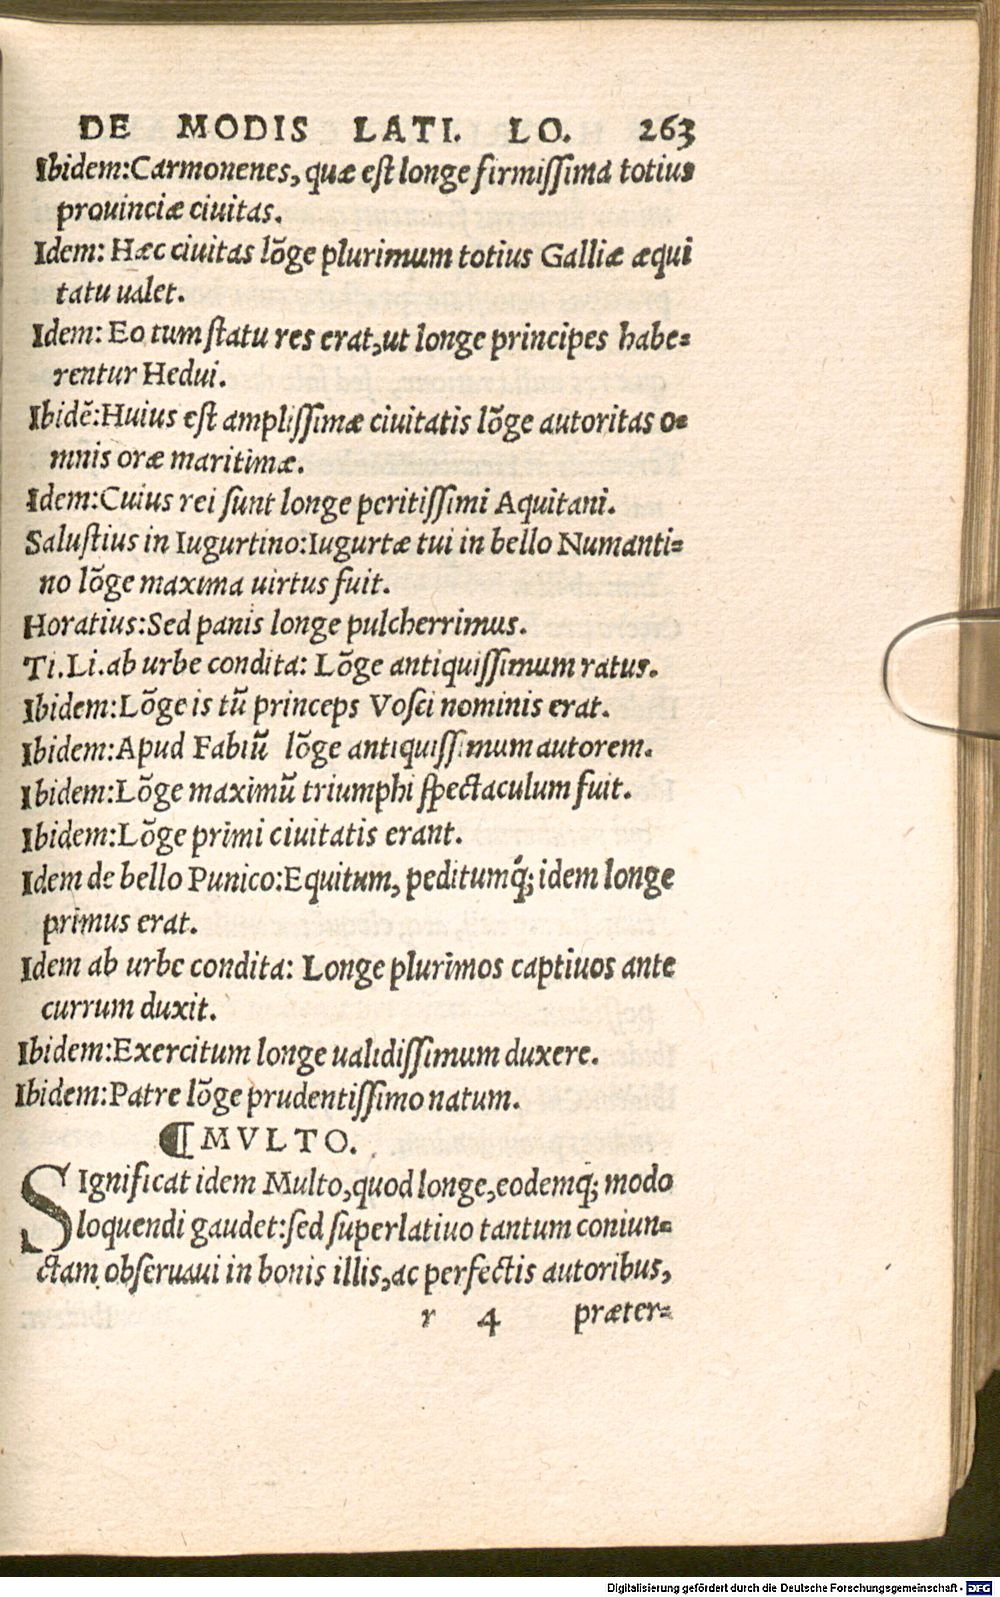 DE MODIS LATI. LO. 263
Ibidem:Carmonenes, quæ eſt longe firmiſſima totius
prouinciæ ciuitas.
Idem: Hæc ciuitas lõge plurimum totius Galliæ æqui
tatu ualet.
Idem: Eo tum ſtatu res erat,ut longe principes habe=
rentur Hedui.
Ibidẽ:Huius eſt ampliſſimæ ciuitatis lõge autoritas o=
mnis oræ maritimæ.
Idem:Cuius rei ſunt longe peritiſſimi Aquitani.
Saluſtius in Iugurtino:Iugurtæ tui in bello Numanti=
no lõge maxima uirtus fuit.
Horatius:Sed panis longe pulcherrimus.
Ti.Li.ab urbe condita: Lõge antiquiſſimum ratus.
Ibidem:Lõge is tũ princeps Voſci nominis erat.
Ibidem:Apud Fabiũ lõge antiquiſſimum autorem.
Ibidem:Lõge maximũ triumphi ſpectaculum fuit.
Ibidem:Lõge primi ciuitatis erant.
Idem de bello Punico:Equitum, peditumq́; idem longe
primus erat.
Idem ab urbe condita: Longe plurimos captiuos ante
currum duxit.
Ibidem:Exercitum longe ualidiſſimum duxere.
Ibidem:Patre lõge prudentiſſimo natum.
¶MVLTO.
SIgnificat idem Multo,quod longe,eodemq́; modo
loquendi gaudet:ſed ſuperlatiuo tantum coniun=
ctam obſeruaui in bonis illis,ac perfectis autoribus,
r 4 præter=
Digitalisierung gefördert durch die Deutsche Forschungsgemeinschaft - DFG